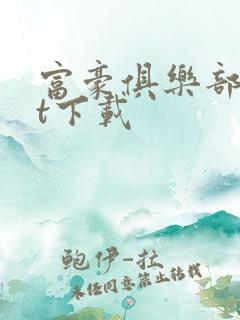 富豪俱樂部
t下載
鮑伊-拉
未经同意禁止转载